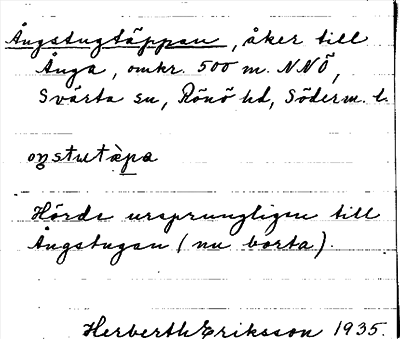 Ångstugtäppan, åker till
Ånga, omkr. 500 m. NNÖ,
Svärta sn, Rönö hd, Söderm. l.
oŋstutàpa
Hörde ursprungligen till
Ångstugan (nu borta).
Herberth Eriksson 1935.